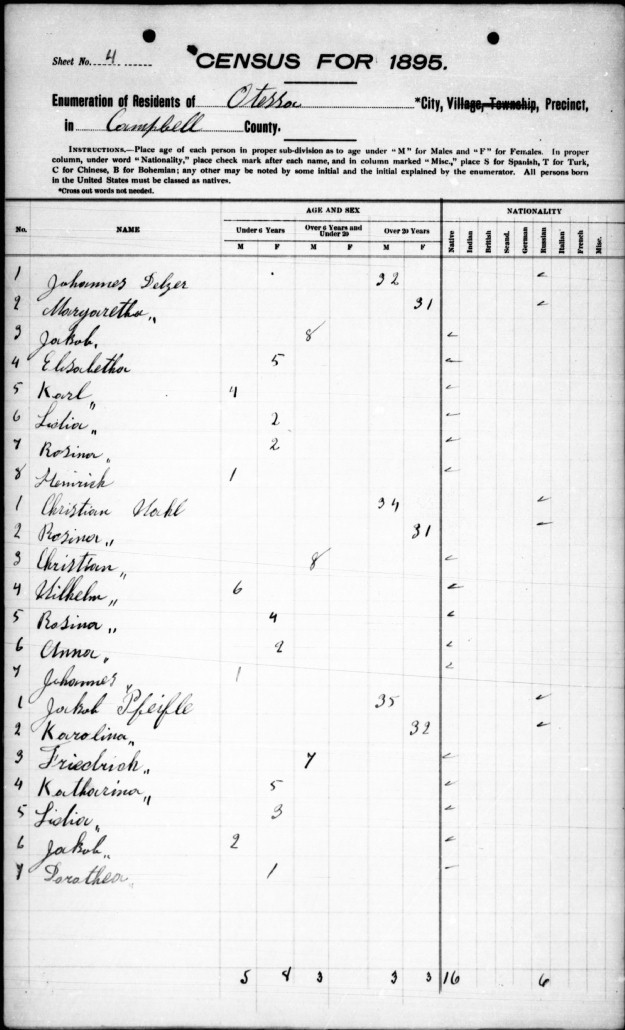 Sheet No. 4
CENSUS FOR 1895.
Enumeration of Residents of Otessa *City, Village, Township, Precinct,
in Campbell County.
INSTRUCTIONS.—Place age of each person in proper sub-division as to age under "M" for Males and "F" for Females. In proper
column, under word "Nationality," place check mark after each name, and in column marked "Misc.," place S for Spanish, T for Turk,
C for Chinese, B for Bohemian; any other may be noted by some initial and the initial explained by the enumerator. All persons born
in the United States must be classed as natives.
*Cross out words not needed.
No. NAME AGE AND SEX NATIONALITY
Under 6 Years Over 6 Years and Under 20 Over 20 Years
M F M F M F Native Indian British Scand. German Russian Italian French Misc.
1 Johannes Delzer 32 ✓
2 Margaretha " 31 ✓
3 Jakob, 8 ✓
4 Elisabetha 5 ✓
5 Karl " 4 ✓
6 Lidia " 2 ✓
7 Rosina " 2 ✓
8 Heinrich 1 ✓
1 Christian 34 ✓
2 Rosina " 31 ✓
3 Christian " 8 ✓
4 Wilhelm " 6 ✓
5 Rosina " 4 ✓
6 Anna " 2 ✓
7 Johannes " 1 ✓
1 Jakob Pfeifle 35 ✓
2 Karolina " 32 ✓
3 Friedrich " 7 ✓
4 Katharina " 5 ✓
5 Lidia " 3 ✓
6 Jakob " 2 ✓
7 Dorothea " 1 ✓
5 8 3 3 3 16 6